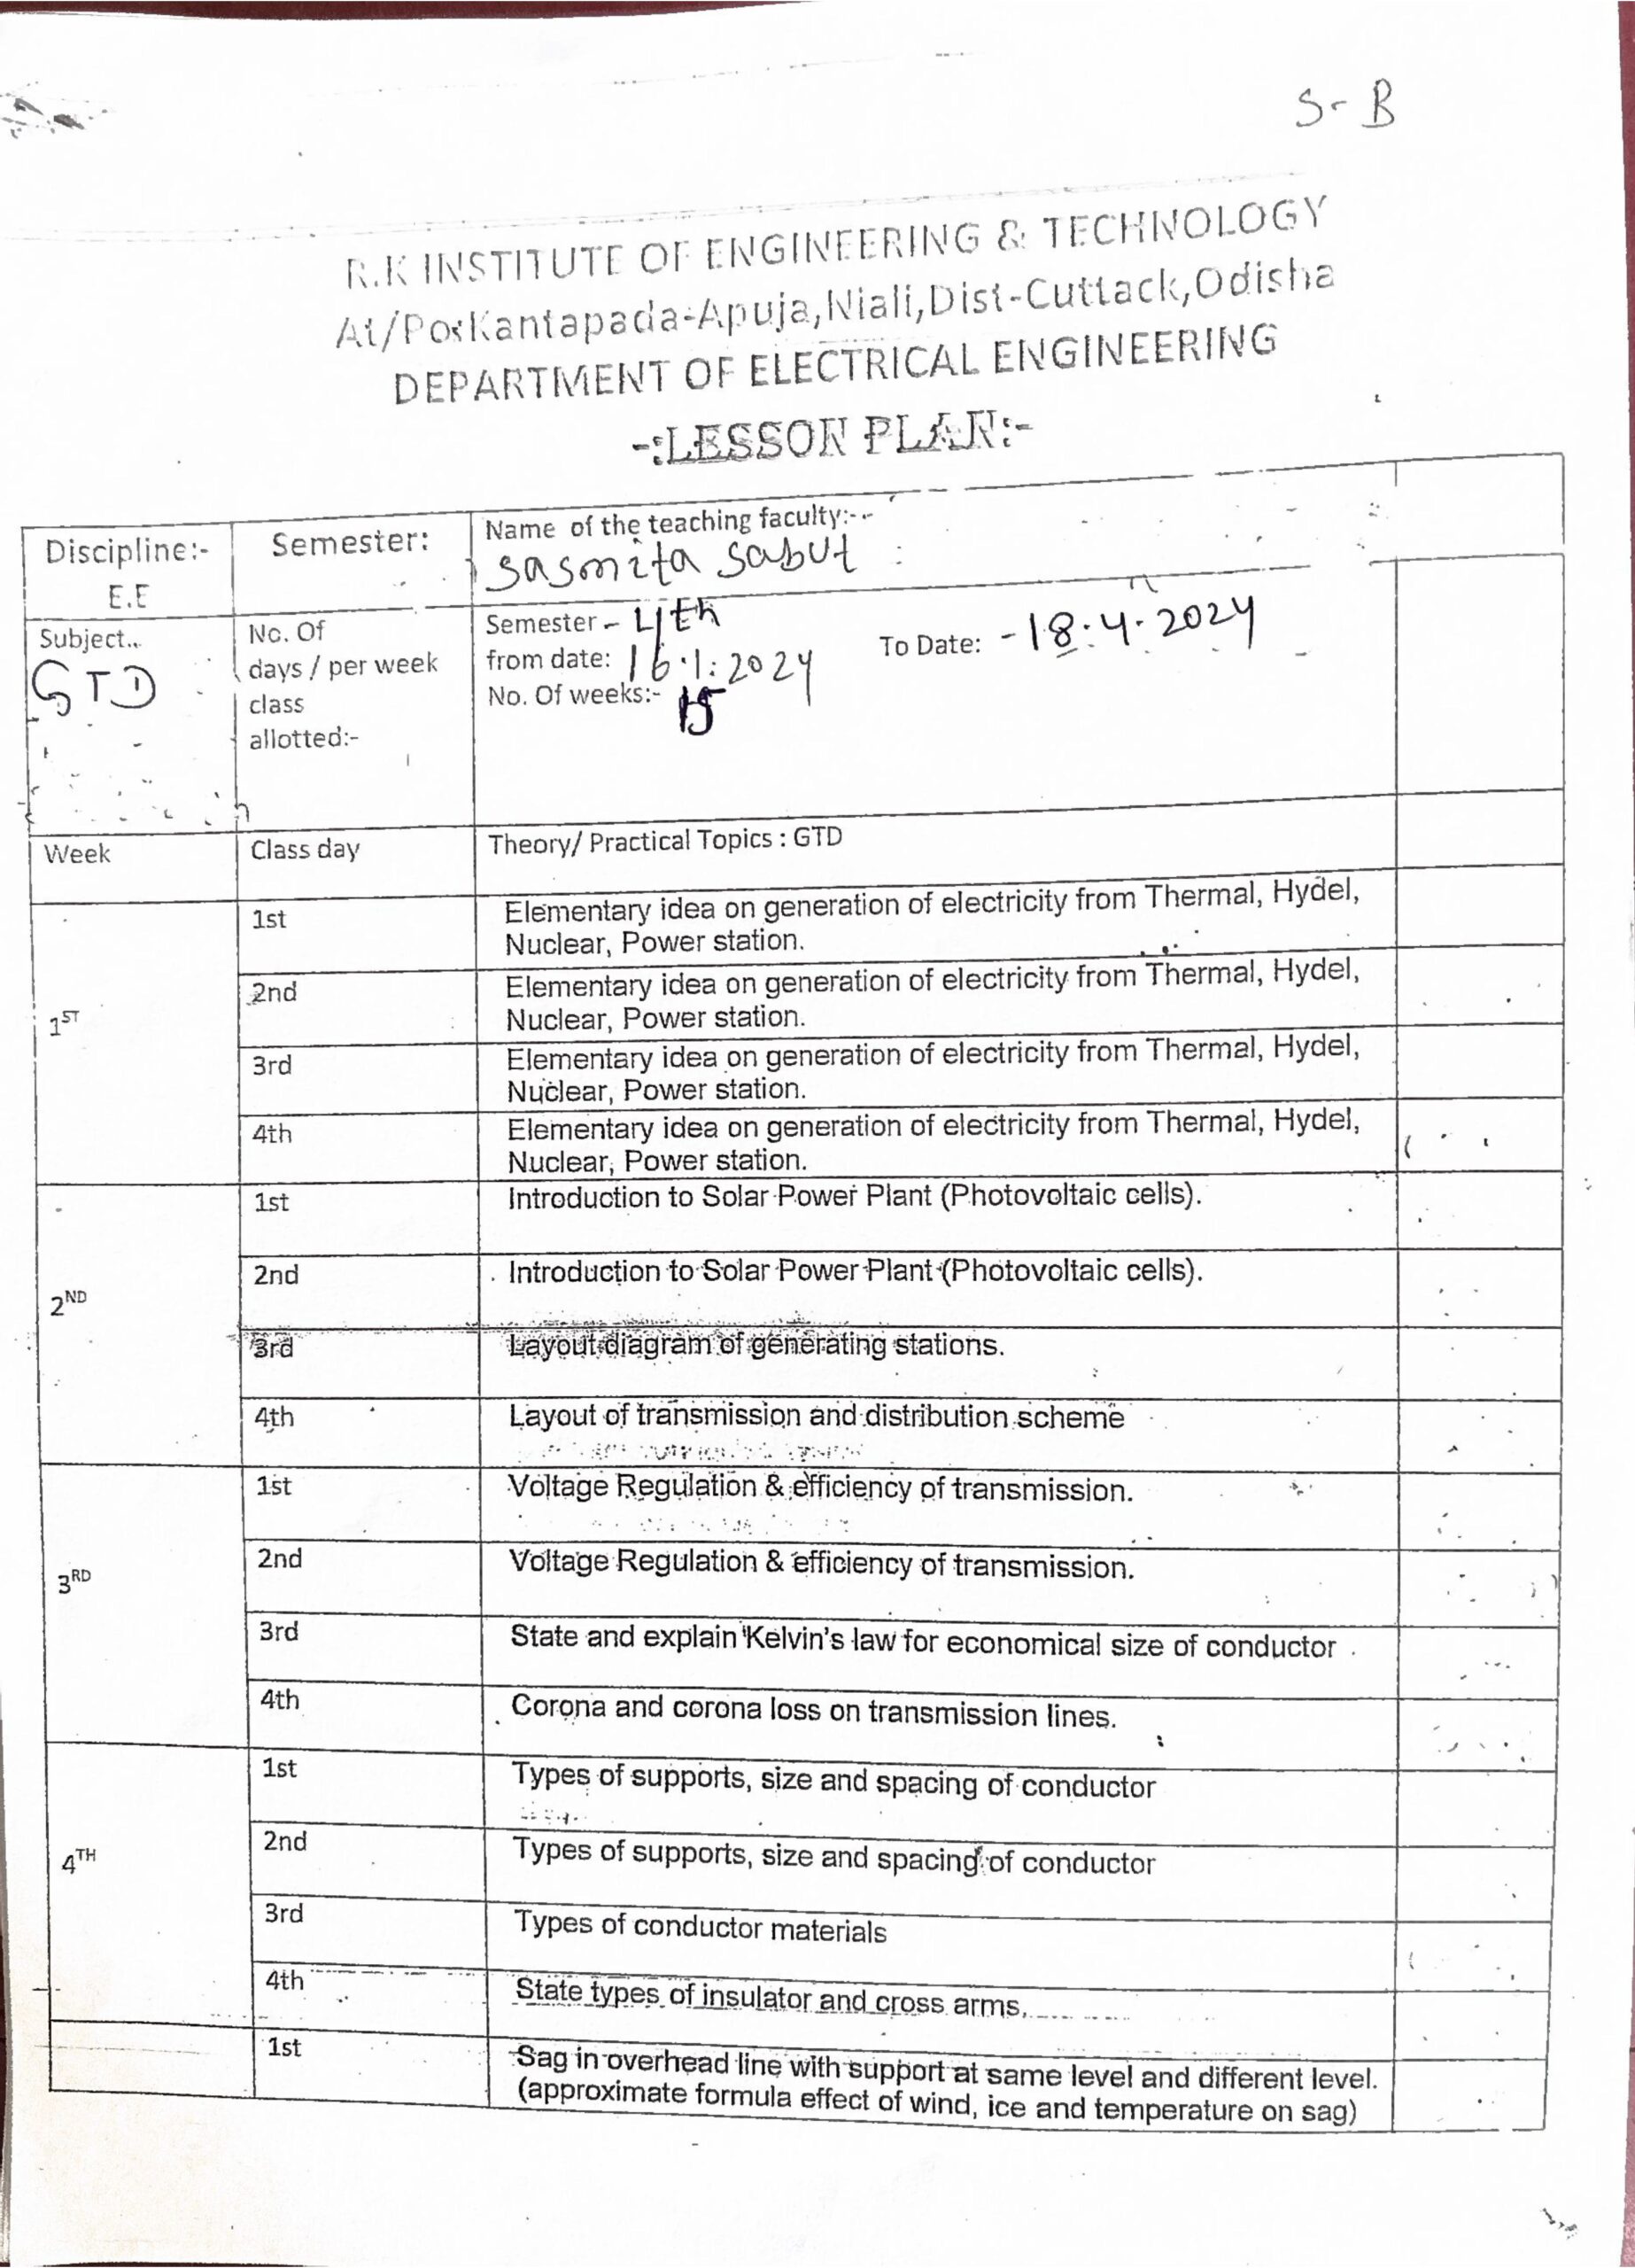 S-B
R.K INSTITUTE OF ENGINEERING & TECHNOLOGY
At/Po:Kantapada-Apuja,Niali,Dist-Cuttack,Odisha
DEPARTMENT OF ELECTRICAL ENGINEERING
-:LESSON PLAN:-
Discipline:-
E.E
Semester:
Name of the teaching faculty:--
Sasmita Sabut
Subject..
GTD
No. Of
days / per week
class
allotted:-
Semester - 4th
from date: 16.1.2024 To Date: - 18.4.2024
No. Of weeks:- 15
Week Class day Theory/ Practical Topics : GTD
1ST
1st Elementary idea on generation of electricity from Thermal, Hydel,
Nuclear, Power station.
2nd Elementary idea on generation of electricity from Thermal, Hydel,
Nuclear, Power station.
3rd Elementary idea on generation of electricity from Thermal, Hydel,
Nuclear, Power station.
4th Elementary idea on generation of electricity from Thermal, Hydel,
Nuclear, Power station.
2ND
1st Introduction to Solar Power Plant (Photovoltaic cells).
2nd Introduction to Solar Power Plant (Photovoltaic cells).
3rd Layout diagram of generating stations.
4th Layout of transmission and distribution scheme
3RD
1st Voltage Regulation & efficiency of transmission.
2nd Voltage Regulation & efficiency of transmission.
3rd State and explain Kelvin's law for economical size of conductor .
4th Corona and corona loss on transmission lines.
4TH
1st Types of supports, size and spacing of conductor
2nd Types of supports, size and spacing of conductor
3rd Types of conductor materials
4th State types of insulator and cross arms.
1st Sag in overhead line with support at same level and different level.
(approximate formula effect of wind, ice and temperature on sag)